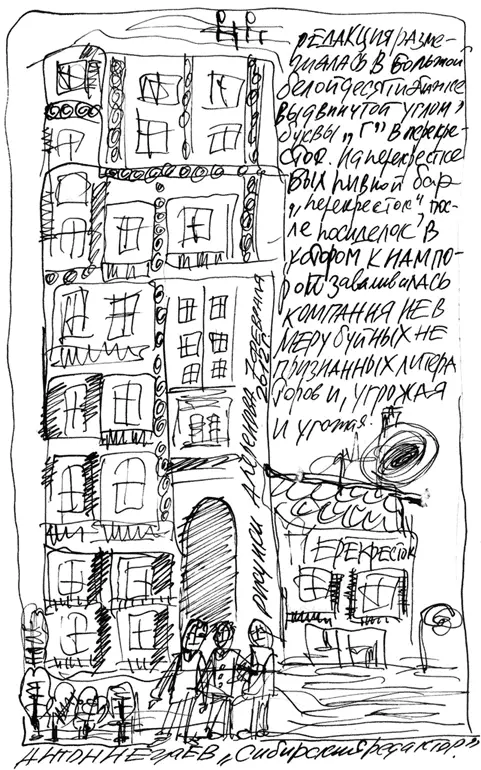 РЕДАКЦИЯ разме-
щалась в большой
белой десятиэтажке
выдвинутой углом
буквы „Г” в перекре-
сток. На перекрестке
был пивной бар
„перекресток”, пос-
ле посиделок в
котором к нам по-
рой заваливалась
компания не в
меру буйных не
признанных литера
торов и, угрожая
и угощая.
рисунки
ПЕРЕКРЕСТОК
АНТОН НЕЧАЕВ „Сибирский редактор”